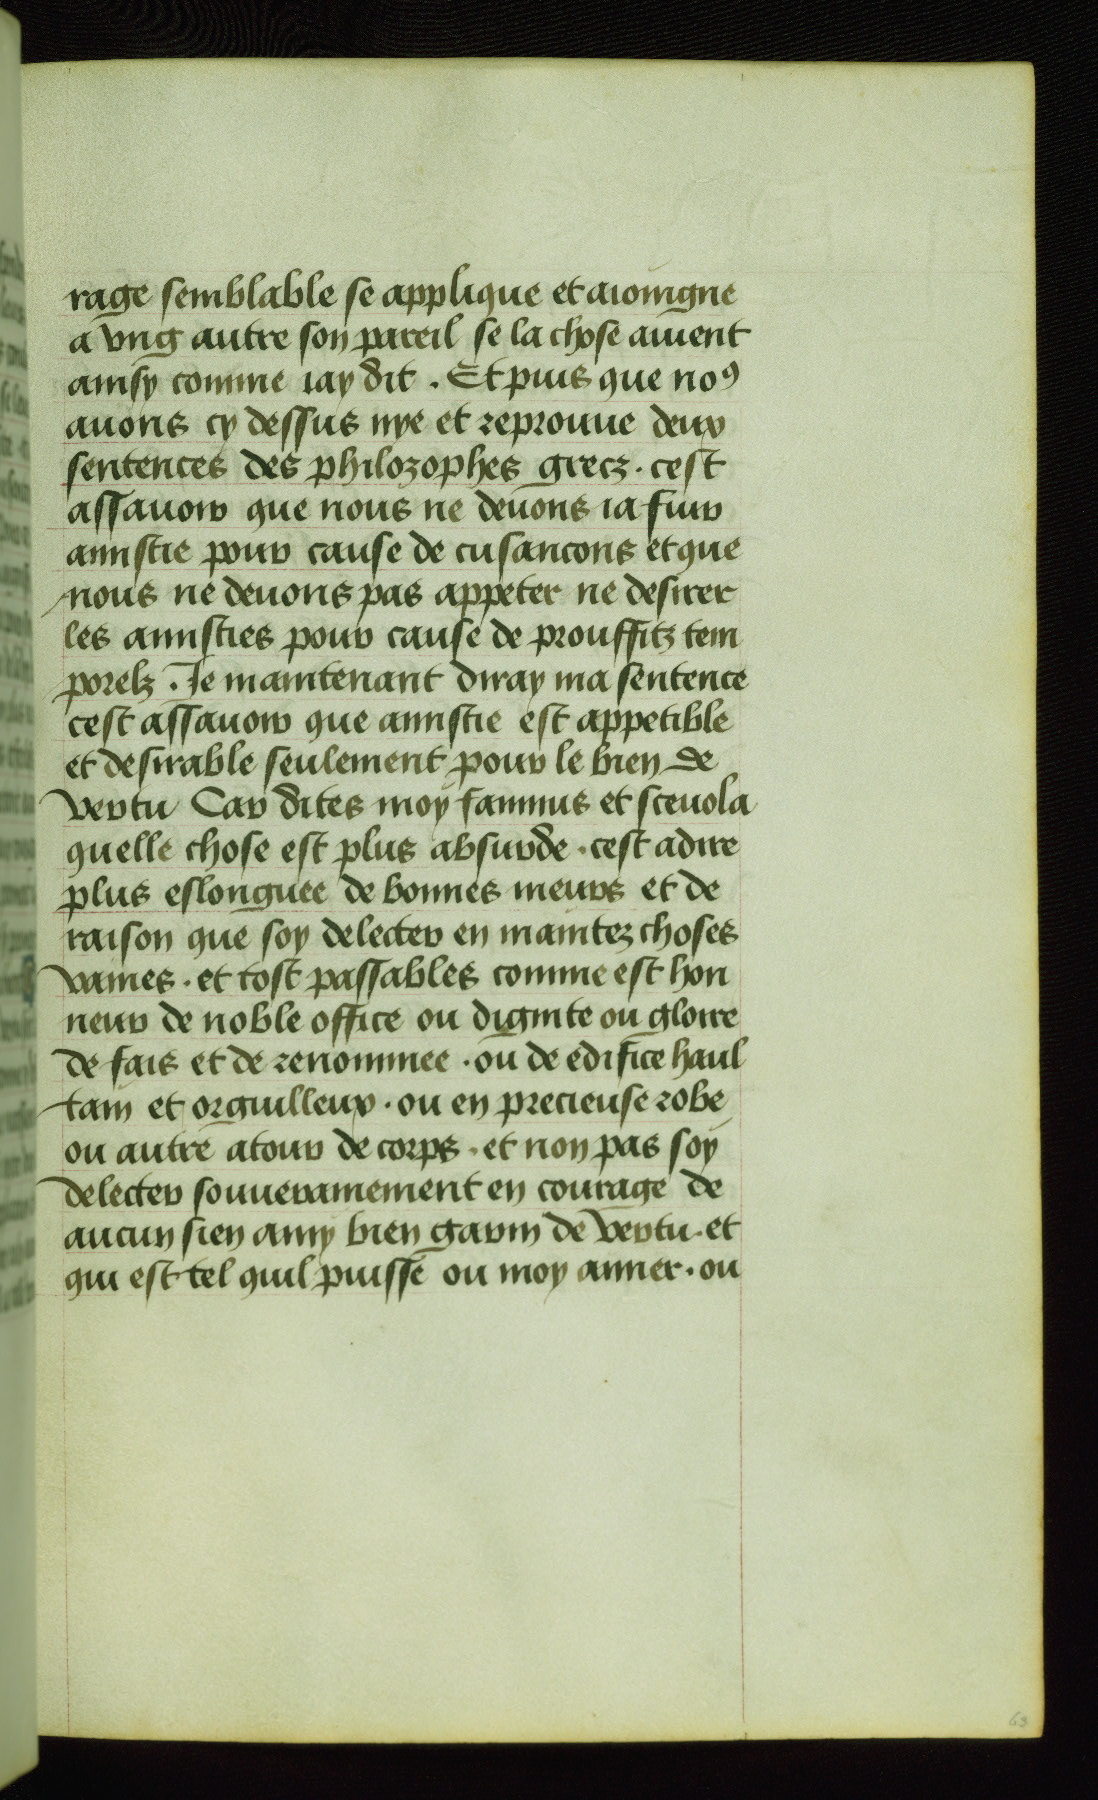 rage semblable se applique et aioingne
a vng autre son pareil se la chose auient
ainsy comme iay dit . Et puis que noꝯ
auons cy dessus nye et reprouue deux
sentences des philozophes grecz . cest
assauoir que nous ne deuons ia fuir
amistie pour cause de cusancons et que
nous ne deuons pas appeter ne desirer
les amisties pour cause de prouffitz tem
porelz . Je maintenant diray ma sentence
cest assauoir que amistie est appetible
et desirable seulement pour le bien de
vertu Car dites moy fannius et sceuola
quelle chose est plus absurde . cest adire
plus eslonguee de bonnes meurs et de
raison que soy delecter en maintez choses
vaines . et tost passables comme est hon
neur de noble office ou dignite ou gloire
de fais et de renommee . ou de edifice haul
tain et orguilleux . ou en precieuse robe
ou autre atour de corps . et non pas soy
delecter souuerainement en courage de
aucun sien amy bien garni de vertu . et
qui est tel quil puisse ou moy aimer . ou
63